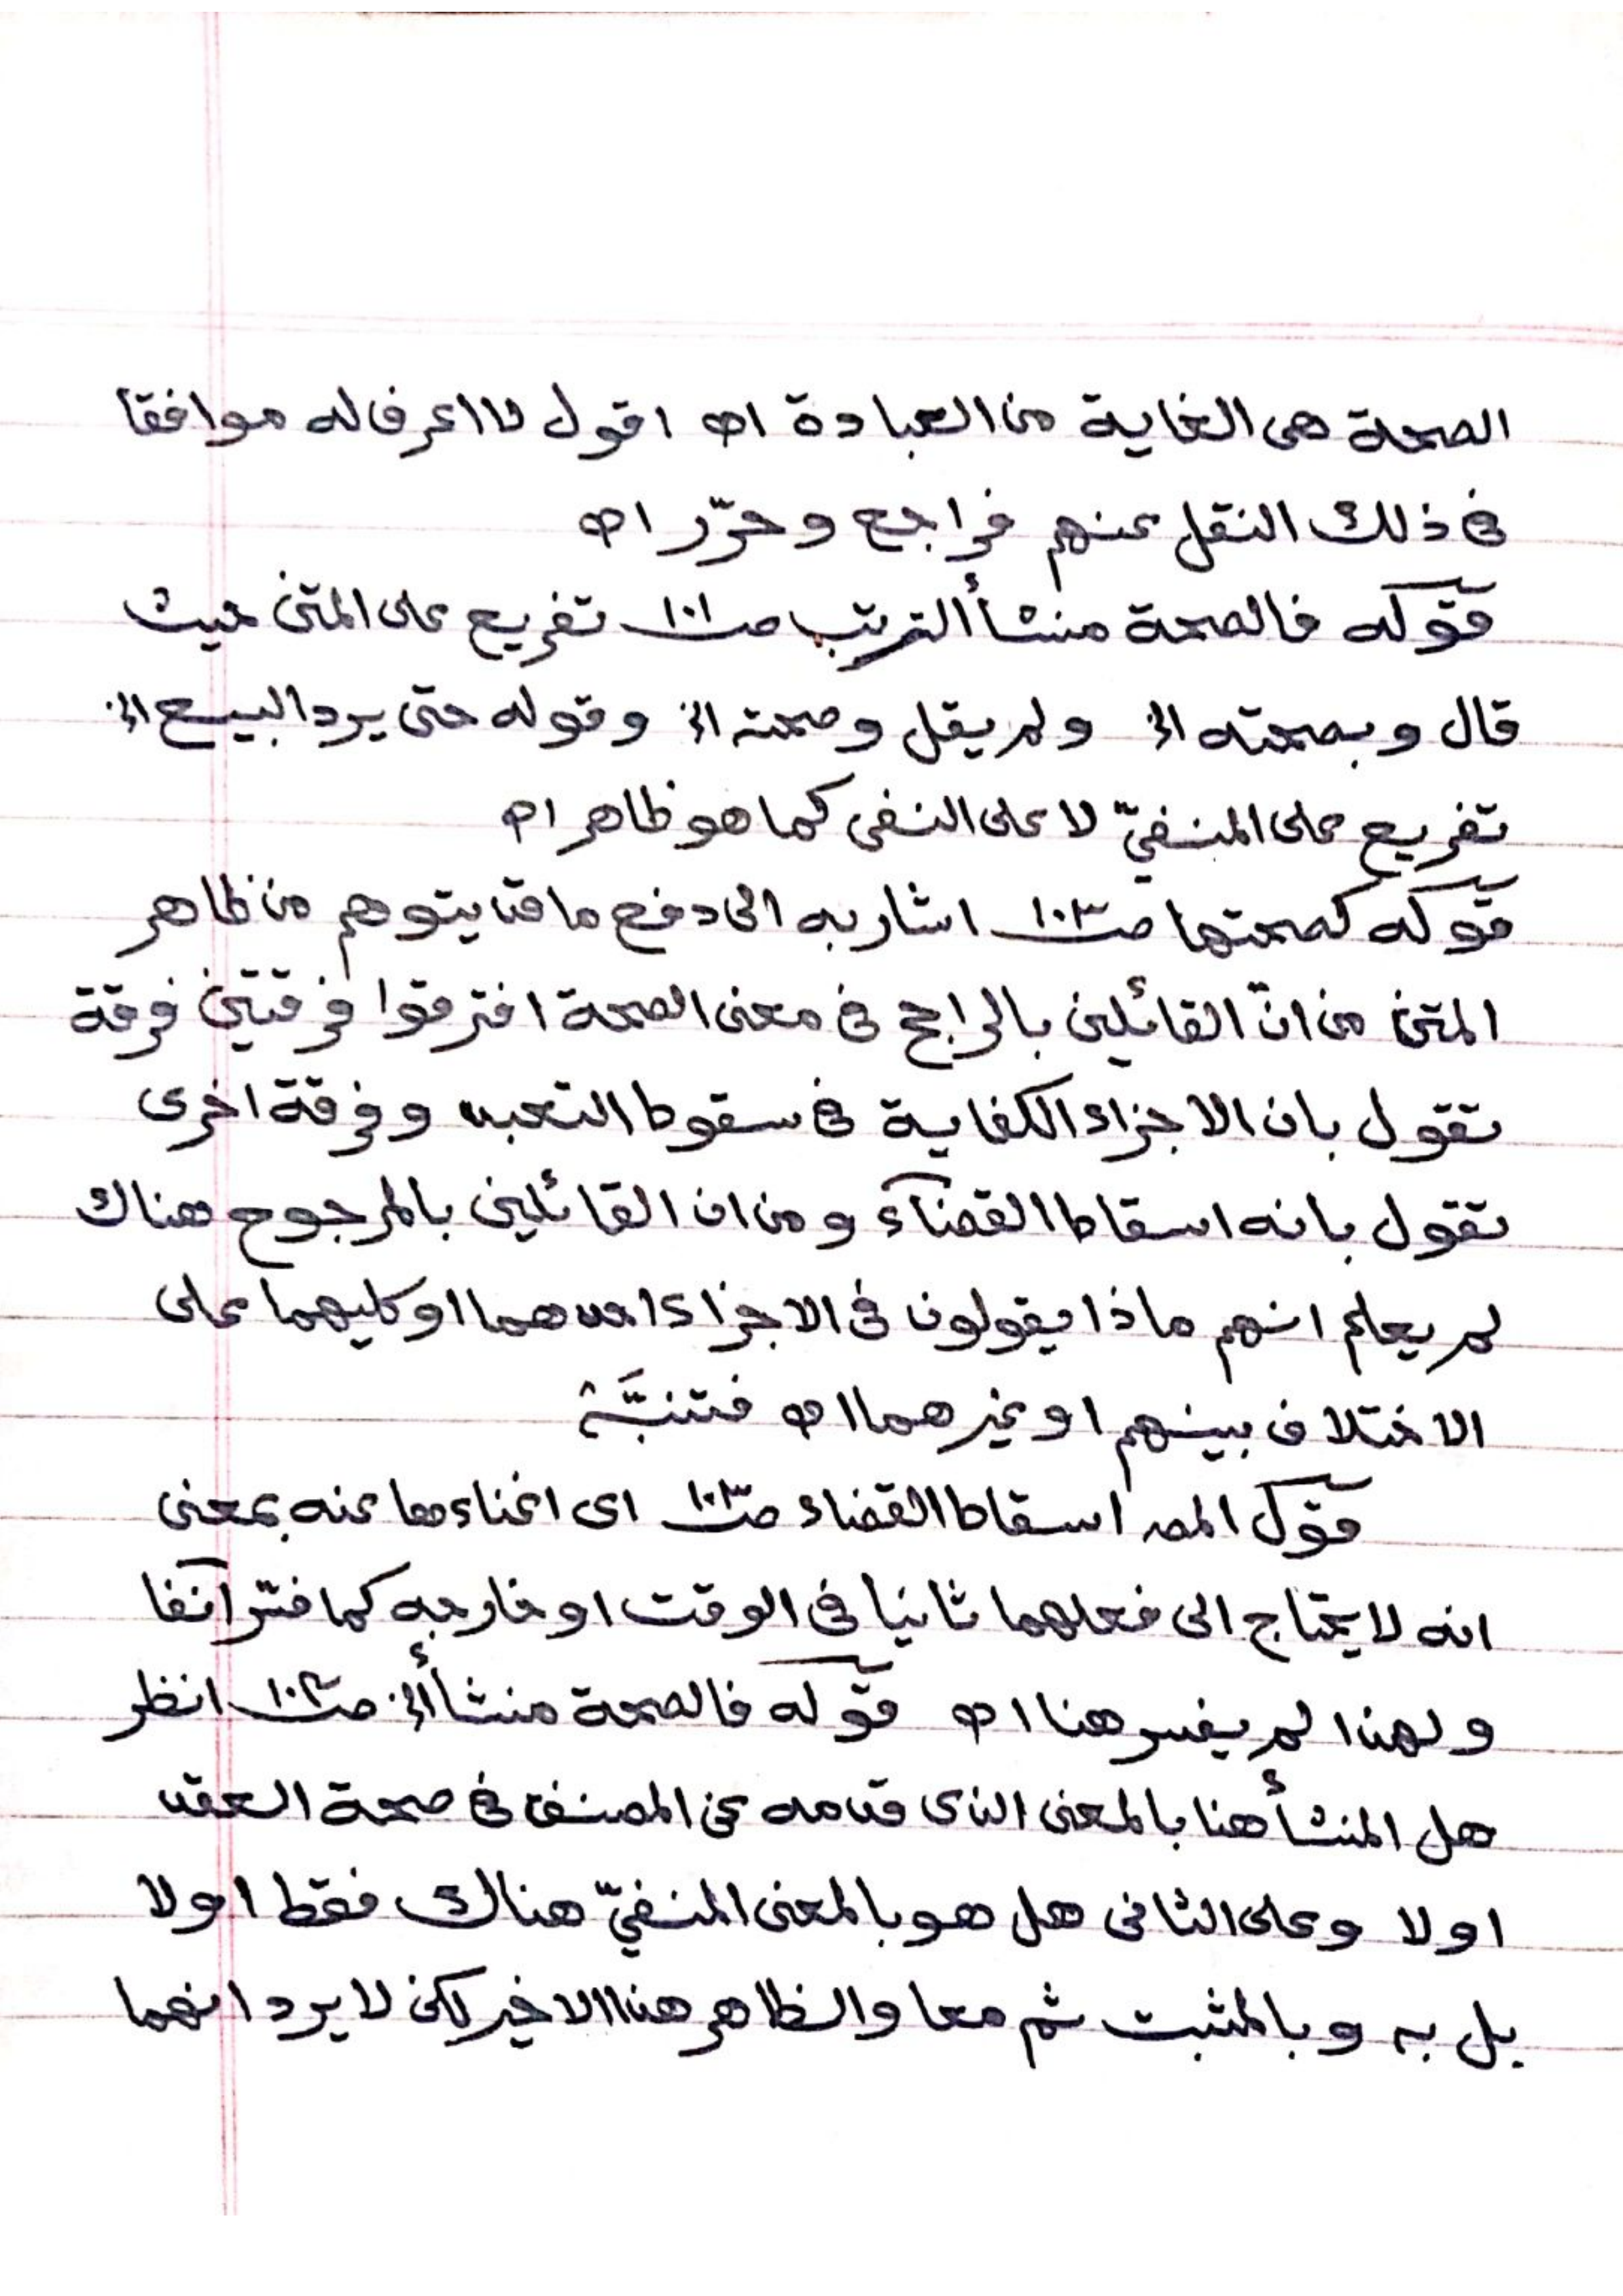 الصحة هى الغاية من العبادة اھ اقول لا اعرف له موافقا
فى ذلك النقل عنهم فراجع وحرّر اھ
قوله فالصحة منشأ الترتب صـ١٠١ تفريع على المتن حيث
قال وبصحته الخ ولم يقل وصحته الخ وقوله حتى يرد البيع الخ
تفريع على المنفيّ لا على النفى كما هو ظاهر اھ
قوله كصحتها صـ١٠٣ اشار به الى دفع ما قد يتوهم من ظاهر
المتن من انّ القائلين بالراجح فى معنى الصحة افترقوا فرقتين فرقة
تقول بان الاجزاء الكفاية فى سقوط التعبد وفرقة اخرى
تقول بانه اسقاط القضآء ومن ان القائلين بالمرجوح هناك
لم يعلم انهم ماذا يقولون فى الاجزاء احدهما او كليهما على
الاختلاف بينهم او غيرهما اھ فتنبَّه
قول المصـ اسقاط القضاء صـ١٠٣ اى اغناءها عنه بمعنى
انه لا يحتاج الى فعلهما ثانيا فى الوقت او خارجه كما فسّر آنفا
ولهذا لم يفسر هنا اھ قوله فالصحة منشأ الخ صـ١٠٢ انظر
هل المنشأ هنا بالمعنى الذى قدمه عن المصنف فى صحة العقد
او لا وعلى الثانى هل هو بالمعنى المنفيّ هناك فقط او لا
بل به وبالمثبت ثم معا والظاهر هنا الاخير لكن لا يرد انهما